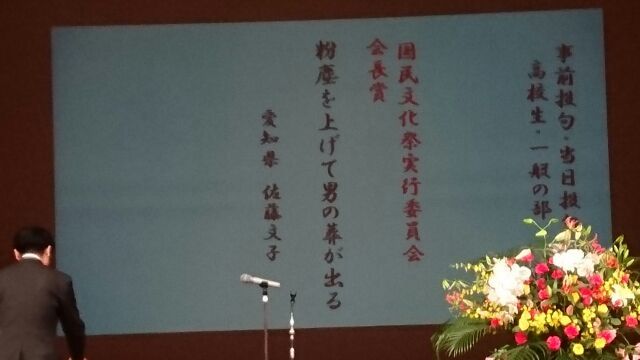 事前投句・当日投句
高校生・一般の部
国民文化祭実行委員会
会長賞
粉塵を上げて男の葬が出る
愛知県 佐藤文子